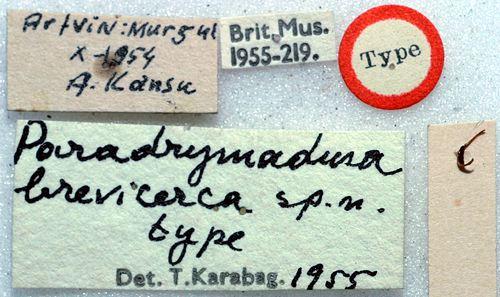 Artvin: Murgul
X-1954
A. Kansu
Brit. Mus.
1955-219.
Type
Paradrymadusa
brevicerca sp.n.
type
Det. T. Karabag. 1955